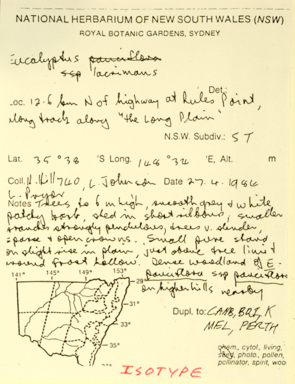 NATIONAL HERBARIUM OF NEW SOUTH WALES (NSW)
ROYAL BOTANIC GARDENS, SYDNEY
Eucalyptus pauciflora
ssp lacrimans
Det.
Loc. 12.6 km N of highway at Rules Point,
along track along "the Long Plain"
N.S.W. Subdiv.: ST
Lat. 35° 38 'S Long. 148° 34 'E, Alt. m
Coll. N. Hill 740, L. Johnson Date 27.4.1984
L. Pryor
Notes Trees to 6 m high, smooth grey & white
patchy bark, shed in short ribbons, smaller
branches strongly pendulous, trees v. slender,
sparse & open crowns. Small pure stand
on slight rise in plain just above tree limit
around frost hollow. Dense woodland of E.
pauciflora ssp pauciflora
on higher hills nearby
141° 145° 149° 153°
29°
31°
33°
35°
Dupl. to: CANB, BRI, K
MEL, PERTH
chem, cytol, living,
photo, pollen,
pollinator, spirit, woo
ISOTYPE